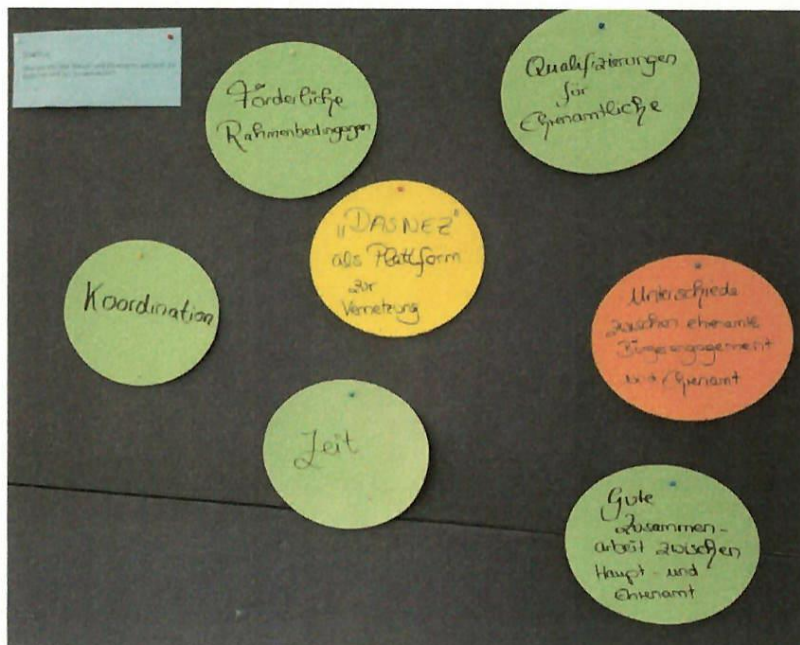 Förderliche
Rahmenbedingungen
Qualifizierungen
für
Ehrenamtliche
„DASNEZ“
als Plattform
zur
Vernetzung
Koordination
Unterschiede
zwischen
Bürgerengagement
und Ehrenamt
Zeit
Gute
Zusammen-
arbeit zwischen
Haupt- und
Ehrenamt